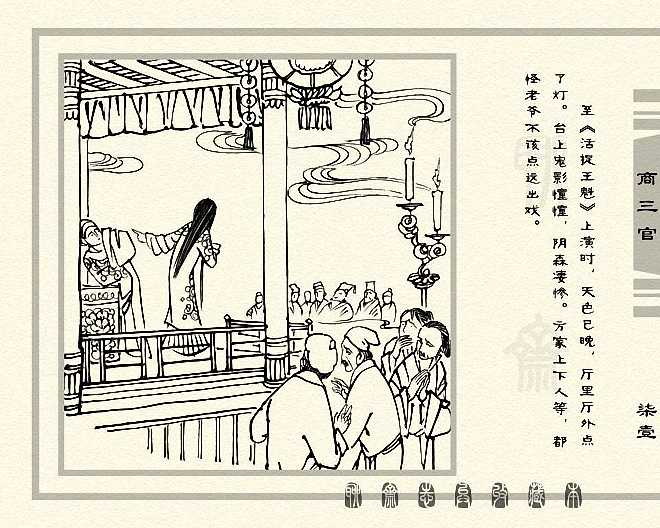 至《活捉王魁》上演时，天色已晚，厅里厅外点
了灯。台上鬼影憧憧，阴森凄惨。方家上下人等，都
怪老爷不该点这出戏。
商三官
柒壹
聊斋志异收藏本